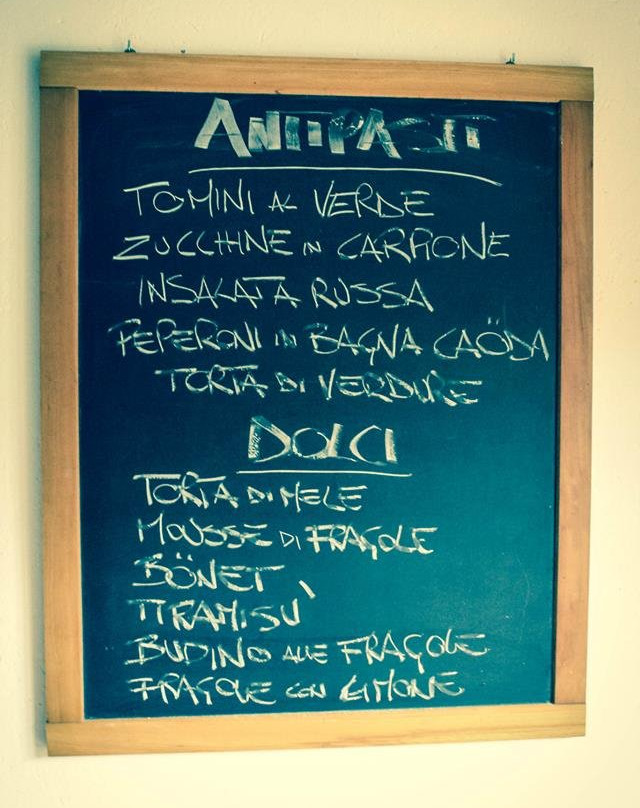 ANTIPASTI
TOMINI AL VERDE
ZUCCHINE IN CARPIONE
INSALATA RUSSA
PEPERONI IN BAGNA CAÖDA
TORTA DI VERDURE
DOLCI
TORTA DI MELE
MOUSSE DI FRAGOLE
BÖNET
TIRAMISÙ
BUDINO ALLE FRAGOLE
FRAGOLE CON LIMONE